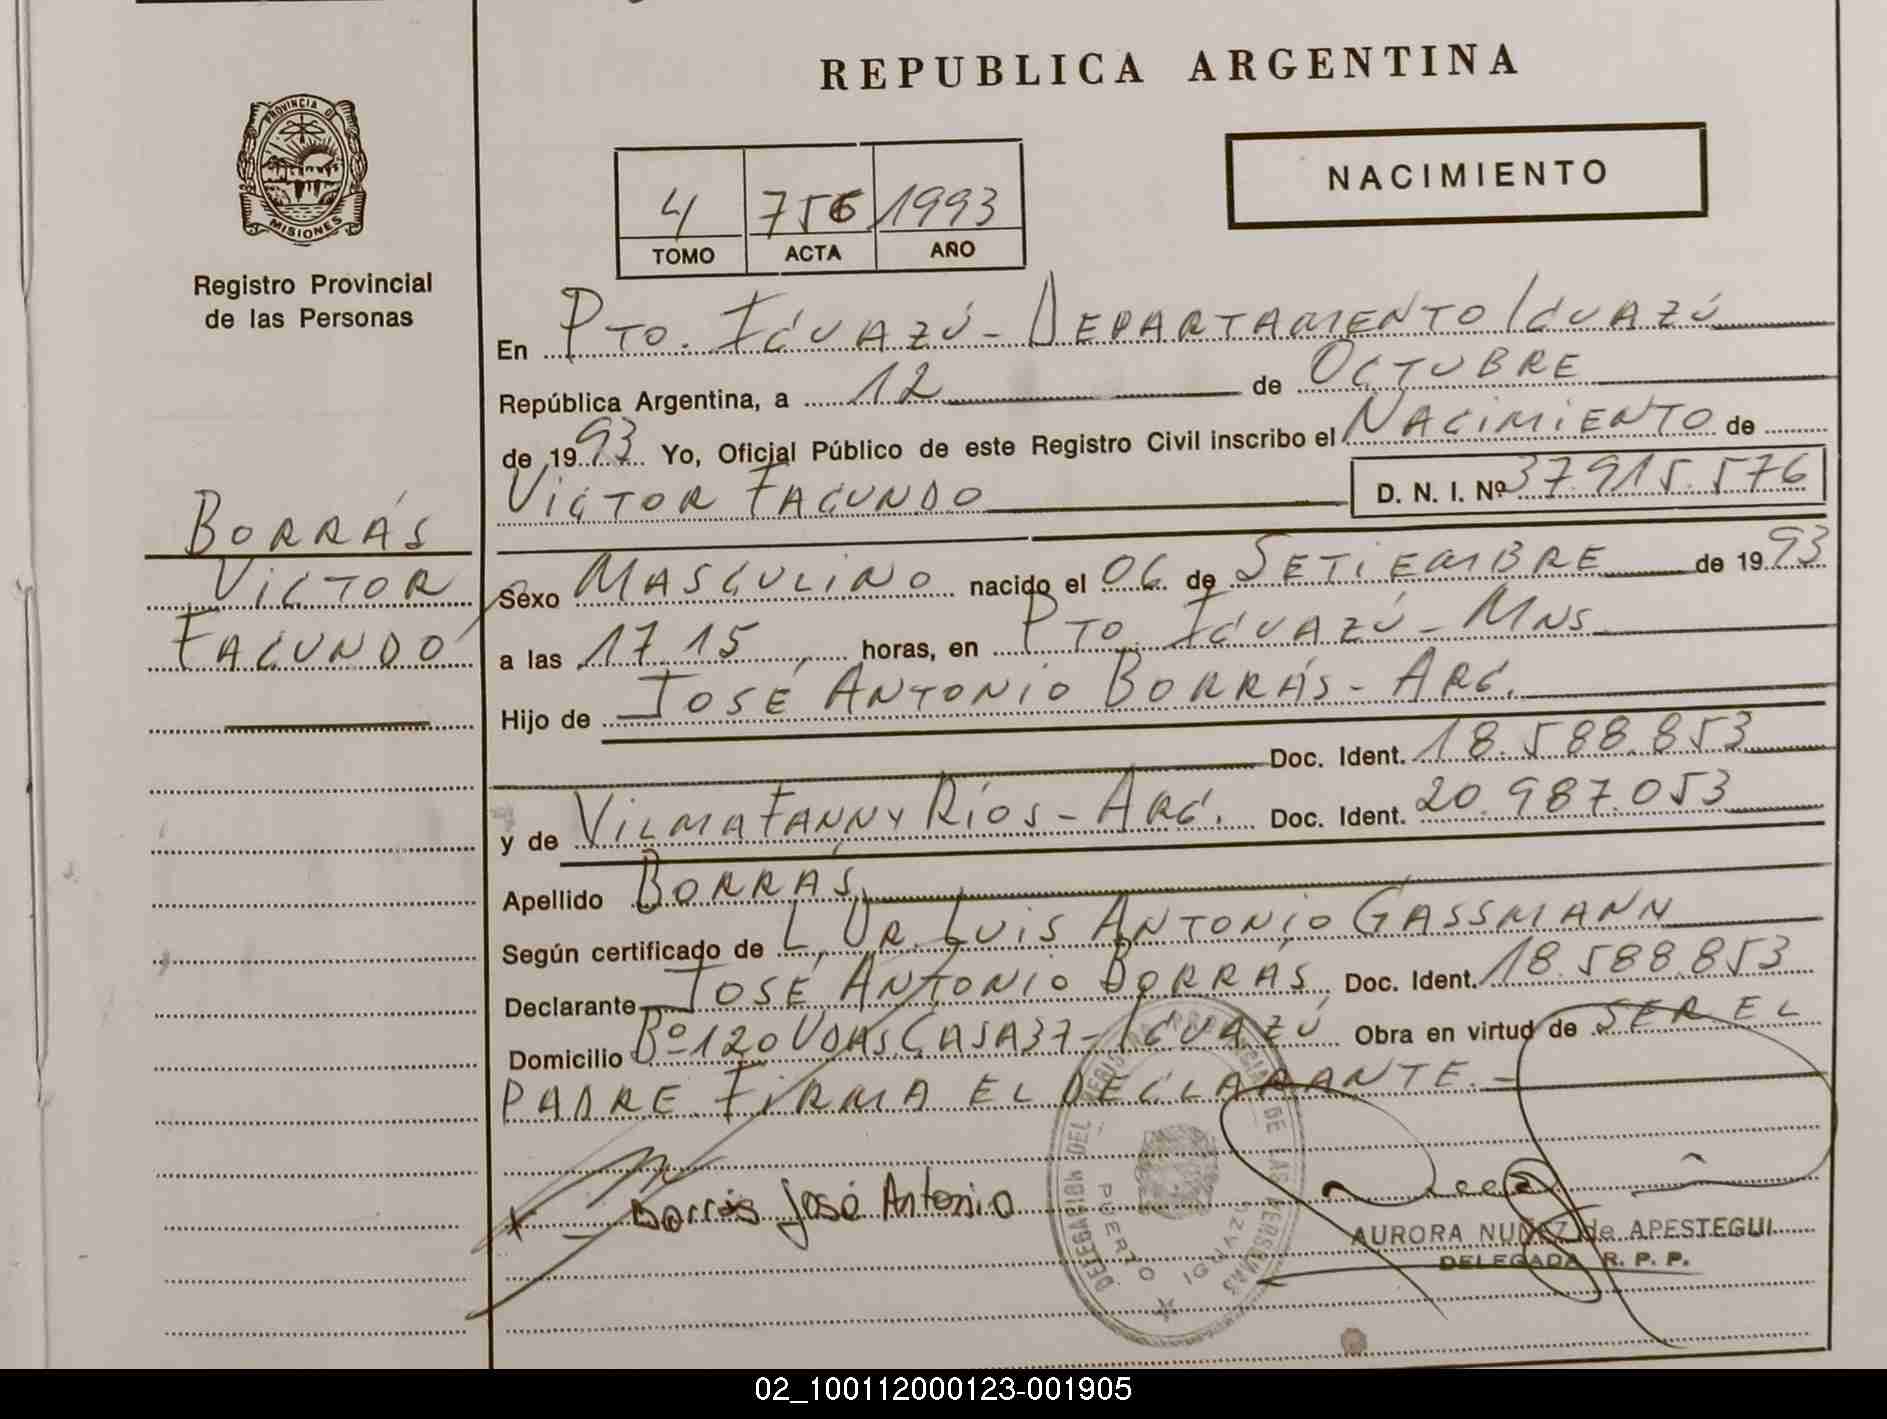 REPUBLICA ARGENTINA
PROVINCIA DE
MISIONES
Registro Provincial
de las Personas
4 756 1993
TOMO ACTA AÑO
NACIMIENTO
En PTO. IGUAZÚ - DEPARTAMENTO IGUAZÚ
República Argentina, a 12 de OCTUBRE
de 1993 Yo, Oficial Público de este Registro Civil inscribo el NACIMIENTO de
VICTOR FACUNDO D. N. I. Nº 37.915.576
BORRÁS
VICTOR
FACUNDO
Sexo MASCULINO nacido el 06 de SETIEMBRE de 1993
a las 17 15 horas, en PTO. IGUAZÚ - MNS.
Hijo de JOSÉ ANTONIO BORRÁS - ARG.
Doc. Ident. 18.588.853
y de VILMA FANNY RÍOS - ARG. Doc. Ident. 20.987.053
Apellido BORRÁS
Según certificado de L. DR. LUIS ANTONIO GASSMANN
Declarante JOSÉ ANTONIO BORRÁS Doc. Ident. 18.588.853
Domicilio Bº 120 VDAS CASA 37 - IGUAZÚ Obra en virtud de SER EL
PADRE. FIRMA EL DECLARANTE. -
Borrás José Antonio
DELEGACION DEL REGISTRO PROVINCIAL DE LAS PERSONAS
PUERTO IGUAZU
AURORA NUÑEZ de APESTEGUI
DELEGADA R. P. P.
02_100112000123-001905